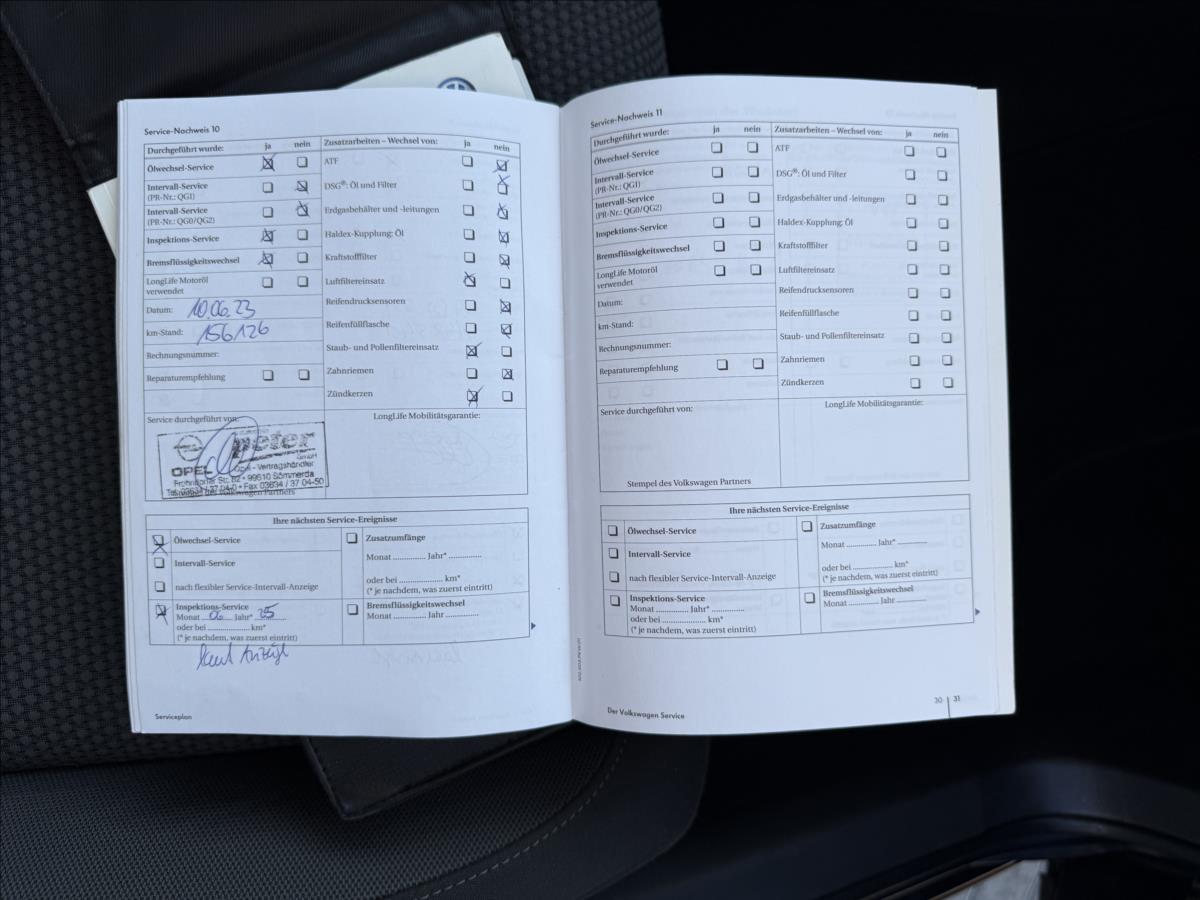 Service-Nachweis 10
Durchgeführt wurde: ja nein
Ölwechsel-Service
Intervall-Service
(PR-Nr.: QG1)
Intervall-Service
(PR-Nr.: QG0/QG2)
Inspektions-Service
Bremsflüssigkeitswechsel
LongLife Motoröl
verwendet
Datum: 10.06.23
km-Stand: 156126
Rechnungsnummer:
Reparaturempfehlung
Zusatzarbeiten – Wechsel von: ja nein
ATF
DSG®: Öl und Filter
Erdgasbehälter und -leitungen
Haldex-Kupplung: Öl
Kraftstofffilter
Luftfiltereinsatz
Reifendrucksensoren
Reifenfüllflasche
Staub- und Pollenfiltereinsatz
Zahnriemen
Zündkerzen
Service durchgeführt von:
peter
GmbH
OPEL Opel - Vertragshändler
Frohndorfer Str. 62 • 99610 Sömmerda
Tel. 03634 / 37 04-0 • Fax 03634 / 37 04-50
Stempel des Volkswagen Partners
LongLife Mobilitätsgarantie:
Ihre nächsten Service-Ereignisse
Ölwechsel-Service
Intervall-Service
nach flexibler Service-Intervall-Anzeige
Inspektions-Service
Monat 06 Jahr* 25
oder bei .................... km*
(* je nachdem, was zuerst eintritt)
Zusatzumfänge
Monat .............. Jahr* ..............
oder bei .................... km*
(* je nachdem, was zuerst eintritt)
Bremsflüssigkeitswechsel
Monat .............. Jahr ..............
laut Anzeige
Serviceplan
Service-Nachweis 11
Durchgeführt wurde: ja nein
Ölwechsel-Service
Intervall-Service
(PR-Nr.: QG1)
Intervall-Service
(PR-Nr.: QG0/QG2)
Inspektions-Service
Bremsflüssigkeitswechsel
LongLife Motoröl
verwendet
Datum:
km-Stand:
Rechnungsnummer:
Reparaturempfehlung
Zusatzarbeiten – Wechsel von: ja nein
ATF
DSG®: Öl und Filter
Erdgasbehälter und -leitungen
Haldex-Kupplung: Öl
Kraftstofffilter
Luftfiltereinsatz
Reifendrucksensoren
Reifenfüllflasche
Staub- und Pollenfiltereinsatz
Zahnriemen
Zündkerzen
Service durchgeführt von:
Stempel des Volkswagen Partners
LongLife Mobilitätsgarantie:
Ihre nächsten Service-Ereignisse
Ölwechsel-Service
Intervall-Service
nach flexibler Service-Intervall-Anzeige
Inspektions-Service
Monat .............. Jahr* ..............
oder bei .................... km*
(* je nachdem, was zuerst eintritt)
Zusatzumfänge
Monat .............. Jahr* ..............
oder bei .................... km*
(* je nachdem, was zuerst eintritt)
Bremsflüssigkeitswechsel
Monat .............. Jahr ..............
Der Volkswagen Service
30 | 31